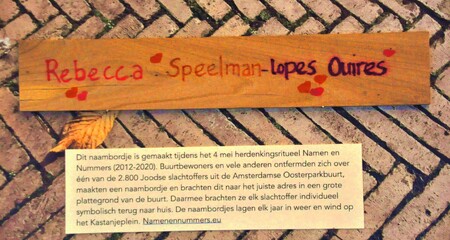 Rebecca Speelman-Lopes Ouires
Dit naambordje is gemaakt tijdens het 4 mei herdenkingsritueel Namen en
Nummers (2012-2020). Buurtbewoners en vele anderen ontfermden zich over
één van de 2.800 Joodse slachtoffers uit de Amsterdamse Oosterparkbuurt,
maakten een naambordje en brachten dit naar het juiste adres in een grote
plattegrond van de buurt. Daarmee brachten ze elk slachtoffer individueel
symbolisch terug naar huis. De naambordjes lagen elk jaar in weer en wind op
het Kastanjeplein. Namenennummers.eu